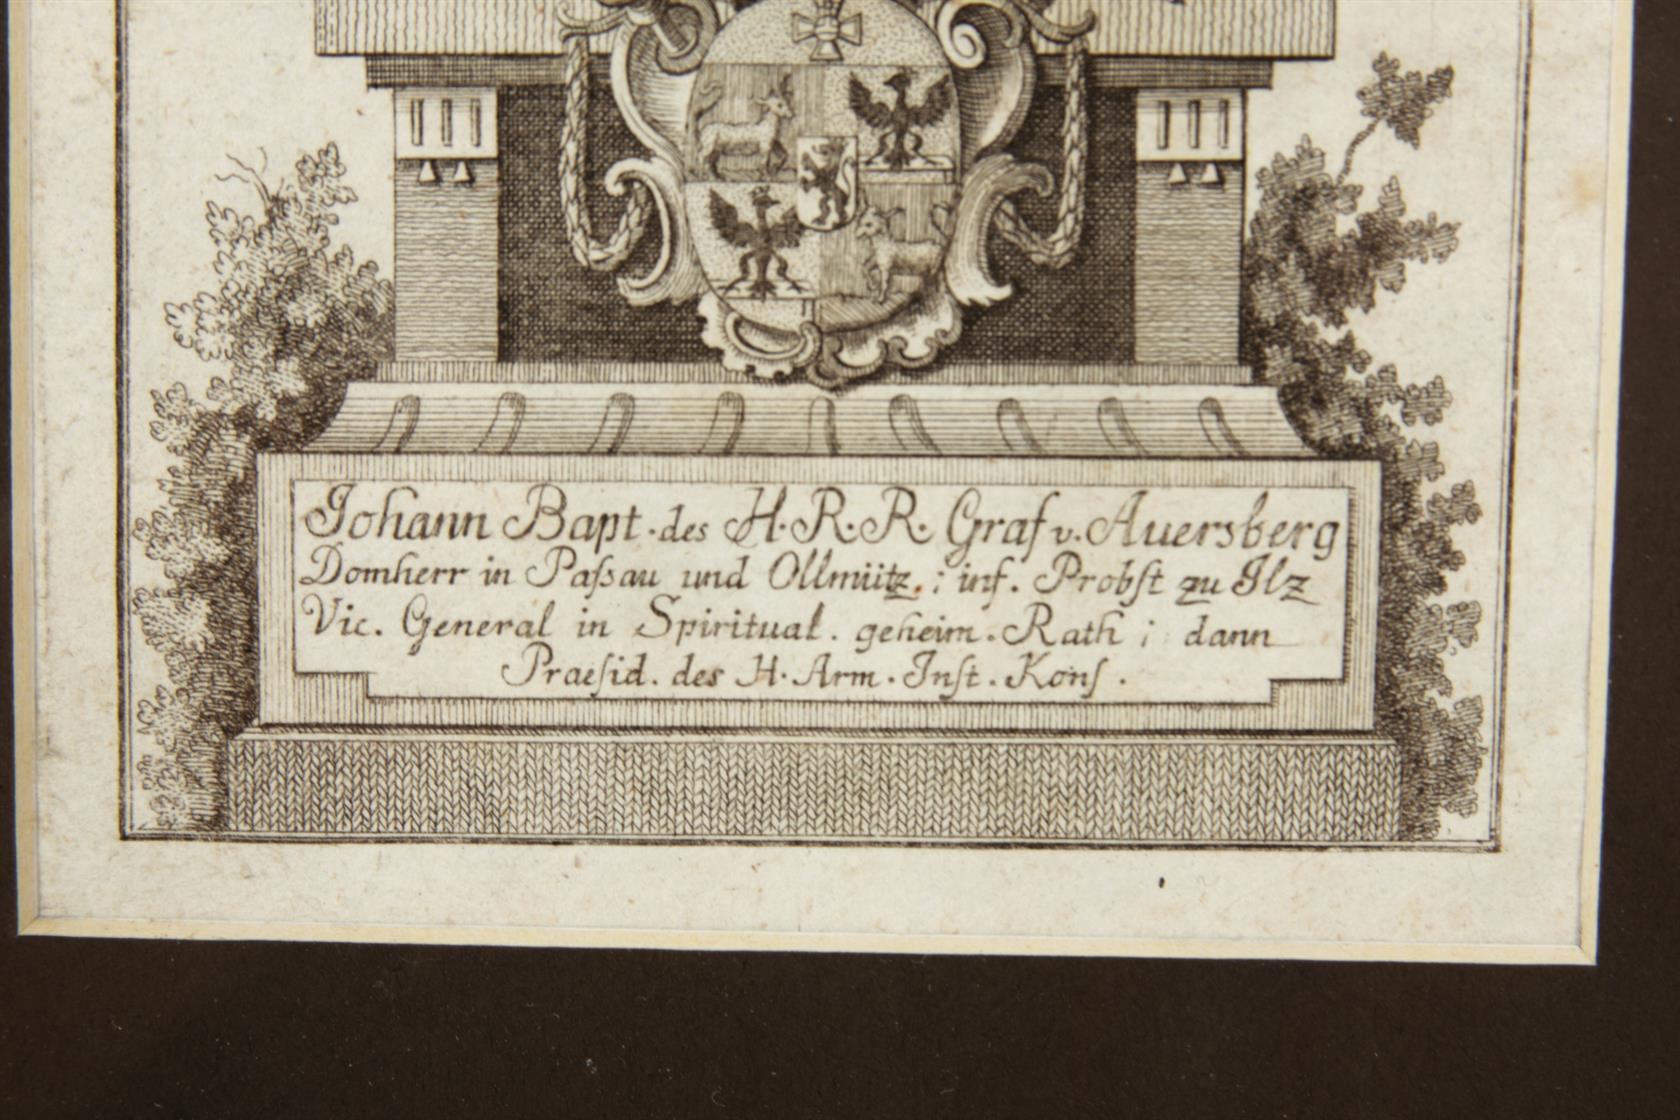 Johann Bapt. des H. R. R. Graf v. Auersberg
Domherr in Paſsau und Ollmütz.; inf. Probſt zu Ilz
Vic. General in Spiritual. geheim. Rath; dann
Praeſid. des H. Arm. Inſt. Konſ.